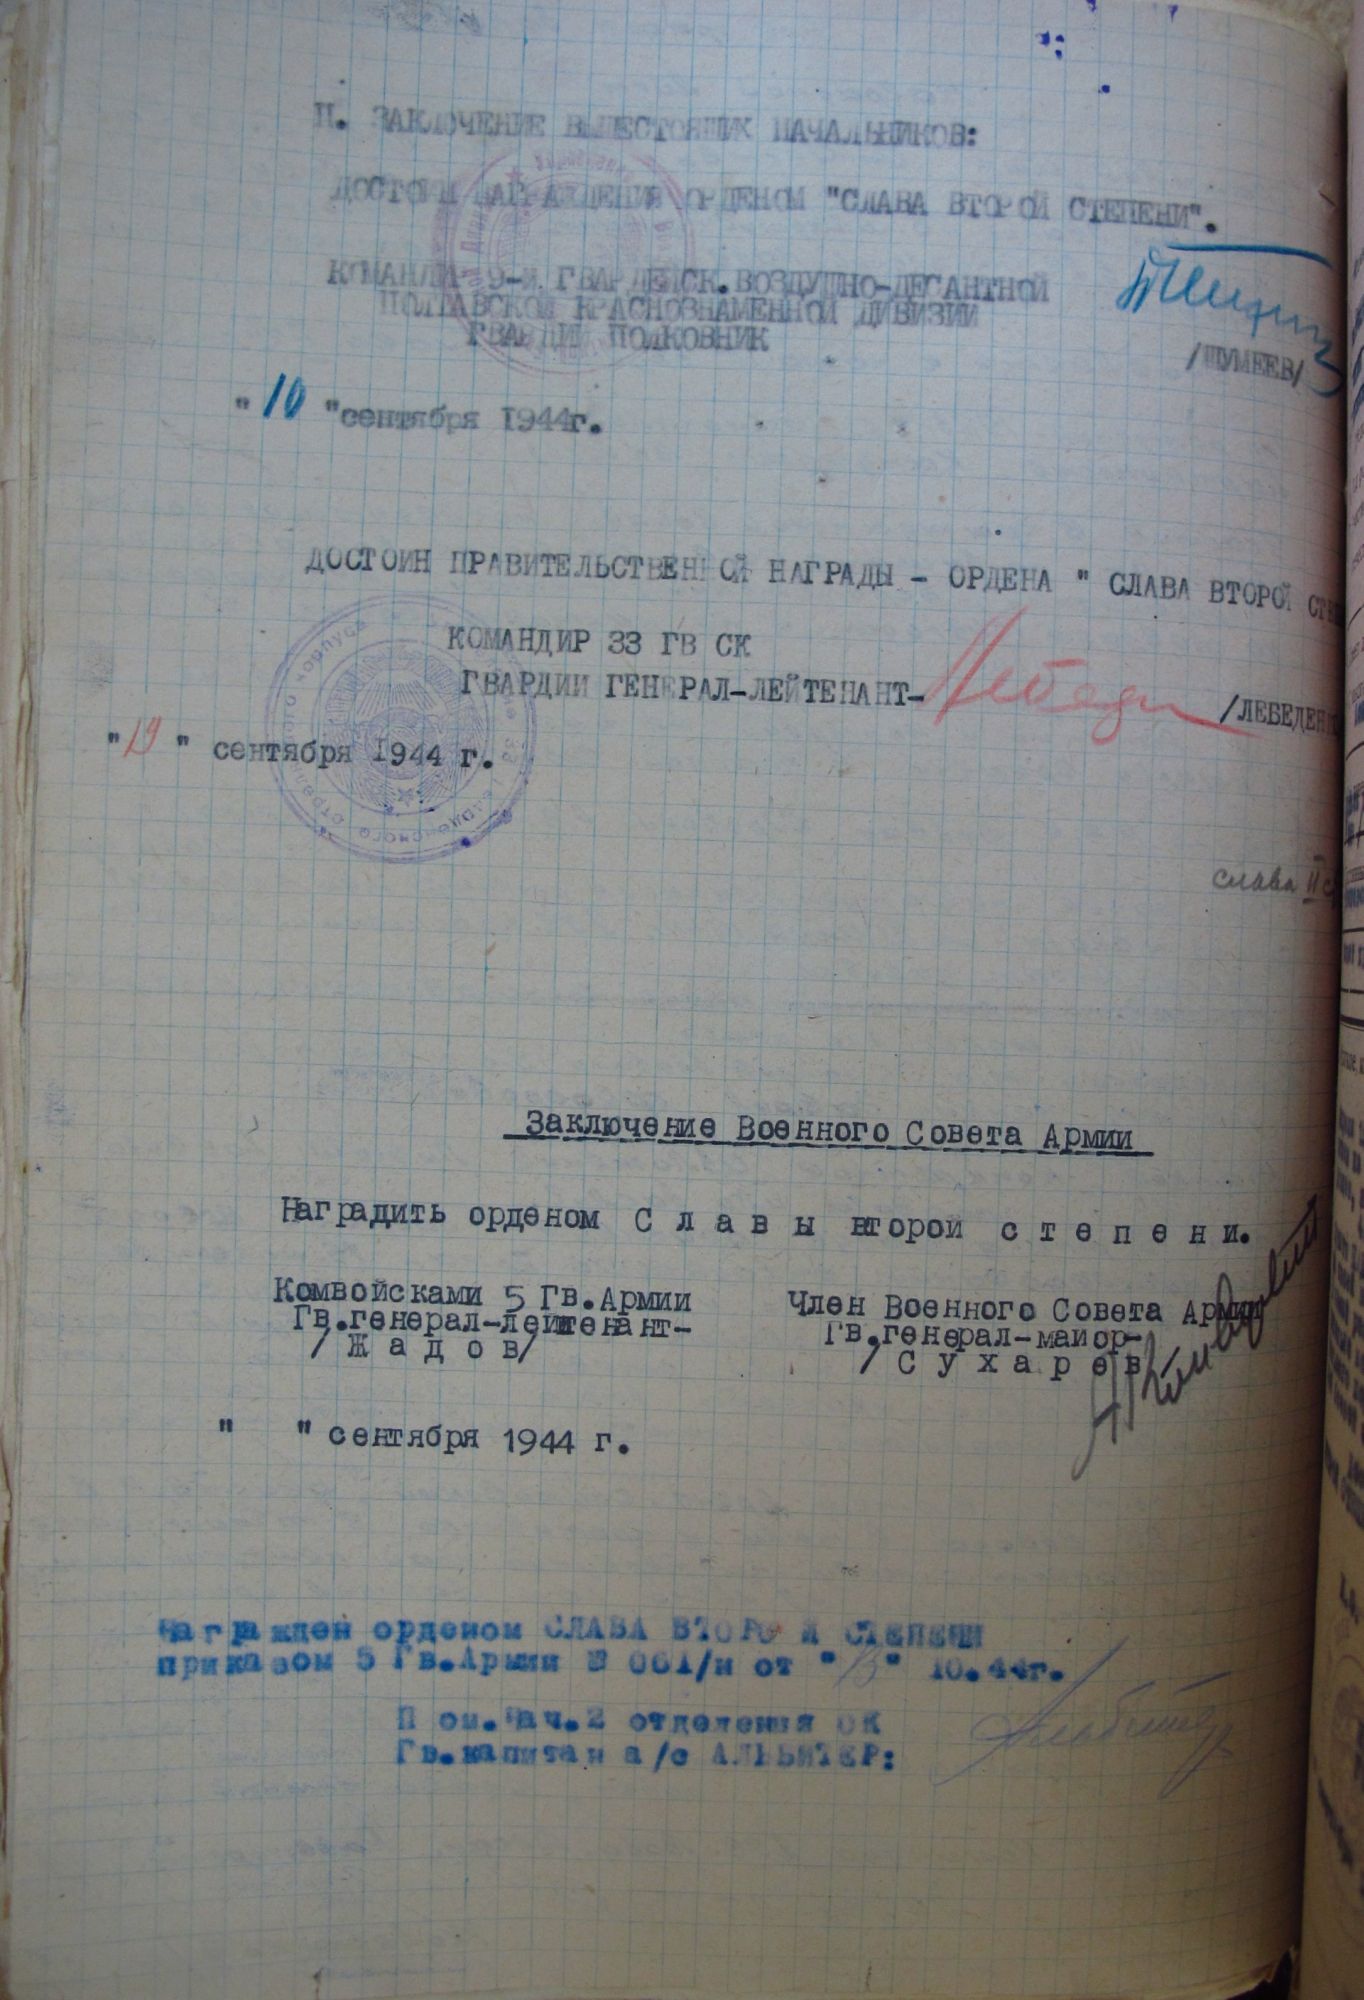 П. ЗАКЛЮЧЕНИЕ ВЫШЕСТОЯЩИХ НАЧАЛЬНИКОВ:
ДОСТОИН НАГРАЖДЕНИЯ ОРДЕНОМ "СЛАВА ВТОРОЙ СТЕПЕНИ".
КОМАНДИР 9-Й ГВАРДЕЙСК.ВОЗДУШНО-ДЕСАНТНОЙ
ПОЛТАВСКОЙ КРАСНОЗНАМЕННОЙ ДИВИЗИИ
ГВАРДИИ ПОЛКОВНИК
/ШУМЕЕВ/
"10 "сентября 1944г.
ДОСТОИН ПРАВИТЕЛЬСТВЕННОЙ НАГРАДЫ – ОРДЕНА " СЛАВА ВТОРОЙ
КОМАНДИР 33 ГВ СК
ГВАРДИИ ГЕНЕРАЛ-ЛЕЙТЕНАНТ-
/ЛЕБЕДЕН
"19 " сентября 1944 г.
слава II
Заключение Военного Совета Армии
Наградить орденом С л а в ы второй с т е п е н и.
Комвойсками 5 Гв.Армии
Гв.генерал-лейтенант-
/ Ж а д о в/
Член Военного Совета Армии
Гв.генерал-майор-
/ С у х а р е в/
" " сентября 1944 г.
Награжден орденом СЛАВА ВТОРОЙ СТЕПЕНИ
приказом 5 Гв.Армии № 061/н от " " 10.44г.
Пом.Нач.2 отделения ОК
Гв.капитан а/с АЛЬБИТЕР: